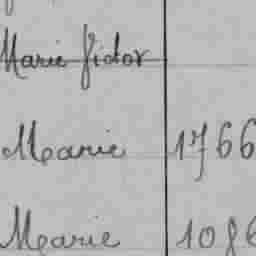 Marie Fidor
Marie 1766
Marie 1086